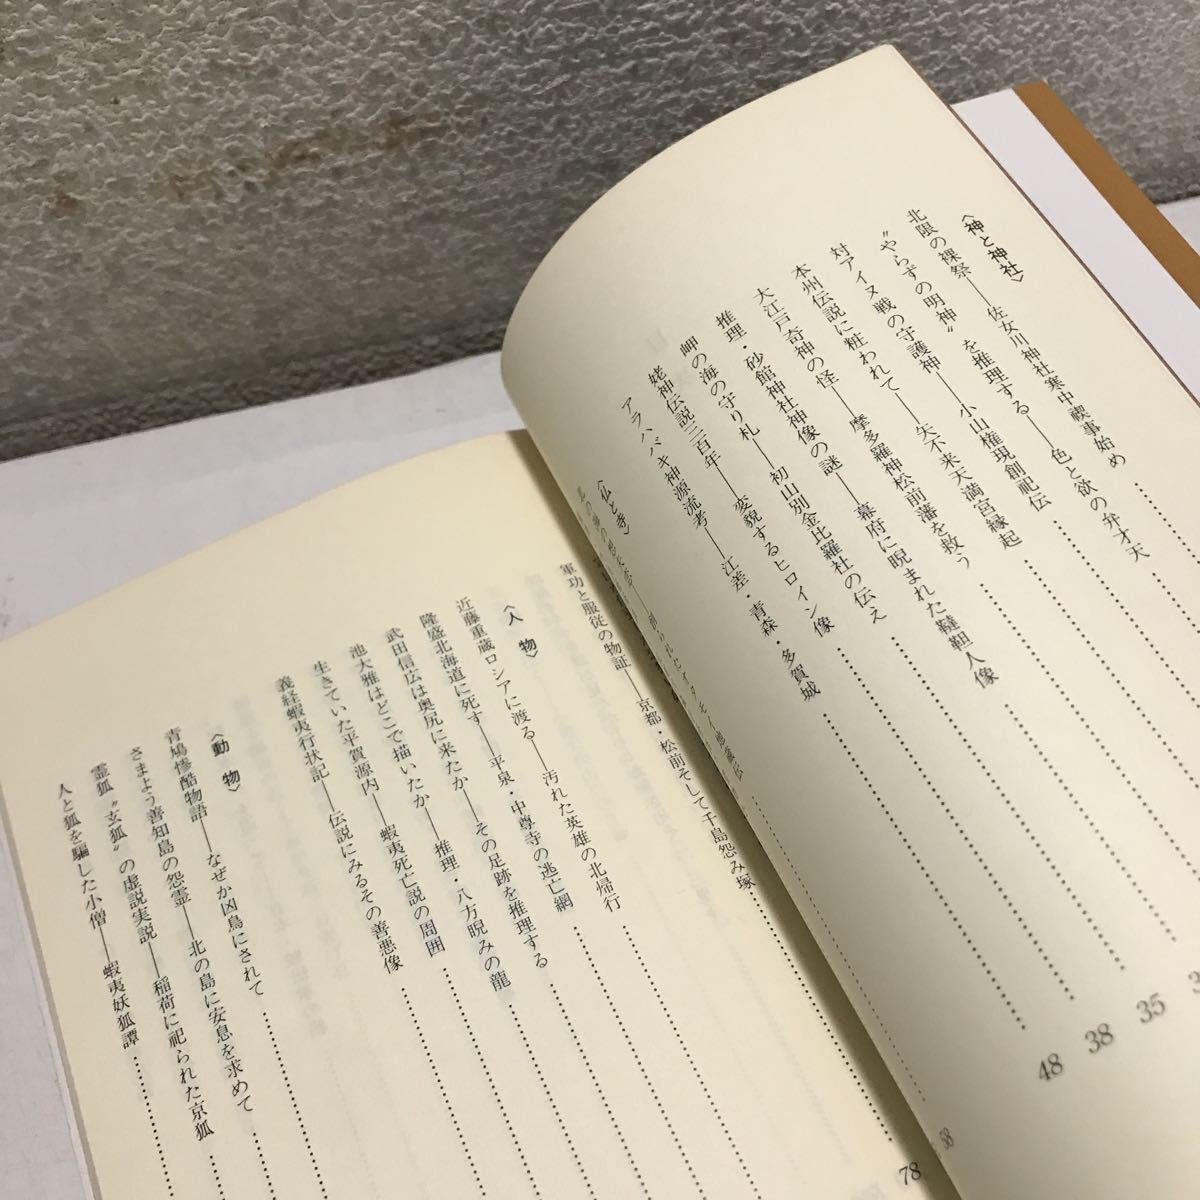 〈神と神社〉
北限の裸祭――佐女川神社寒中禊事始め
〝やらずの明神〟を推理する――色と欲の弁才天
対アイヌ戦の守護神――小山権現創祀伝
本州伝説に粧われて――矢不来天満宮縁起
大江戸奇神の怪――摩多羅神松前藩を救う
推理・砂館神社神像の謎――幕府に睨まれた韃靼人像
岬の海の守り札――初山別金比羅社の伝え
姥神伝説三百年――変貌するヒロイン像
アラハバキ神源流考――江差・青森・多賀城
35
38
48
〈仏と寺〉
58
軍功と服従の物証――京都・松前そして千島怨み塚
78
〈人 物〉
近藤重蔵ロシアに渡る――汚れた英雄の北帰行
隆盛北海道に死す――平泉・中尊寺の逃亡網
武田信広は奥尻に来たか――その足跡を推理する
池大雅はどこで描いたか――推理・八方睨みの龍
生きていた平賀源内――蝦夷死亡説の周囲
義経蝦夷行状記――伝説にみるその善悪像
〈動 物〉
青鳩惨酷物語――なぜか凶鳥にされて
さまよう善知鳥の怨霊――北の島に安息を求めて
霊狐〝玄狐〟の虚説実説――稲荷に祀られた京狐
人と狐を騙した小僧――蝦夷妖狐譚